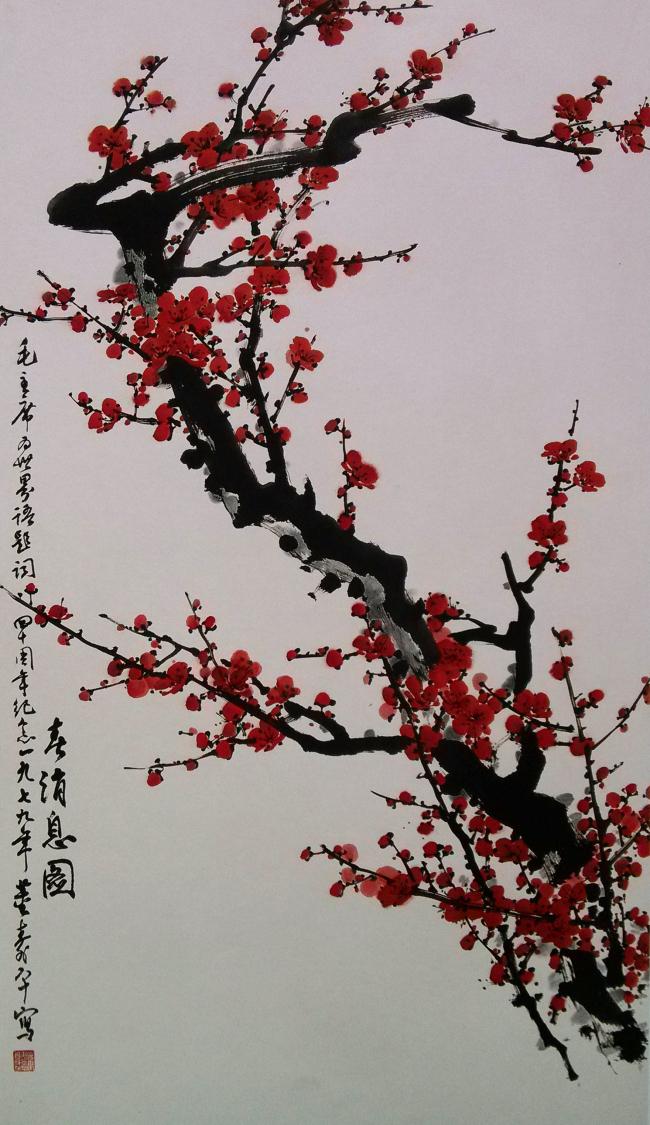 春消息图
毛主席为世界语题词四十周年纪念一九七九年董寿平写